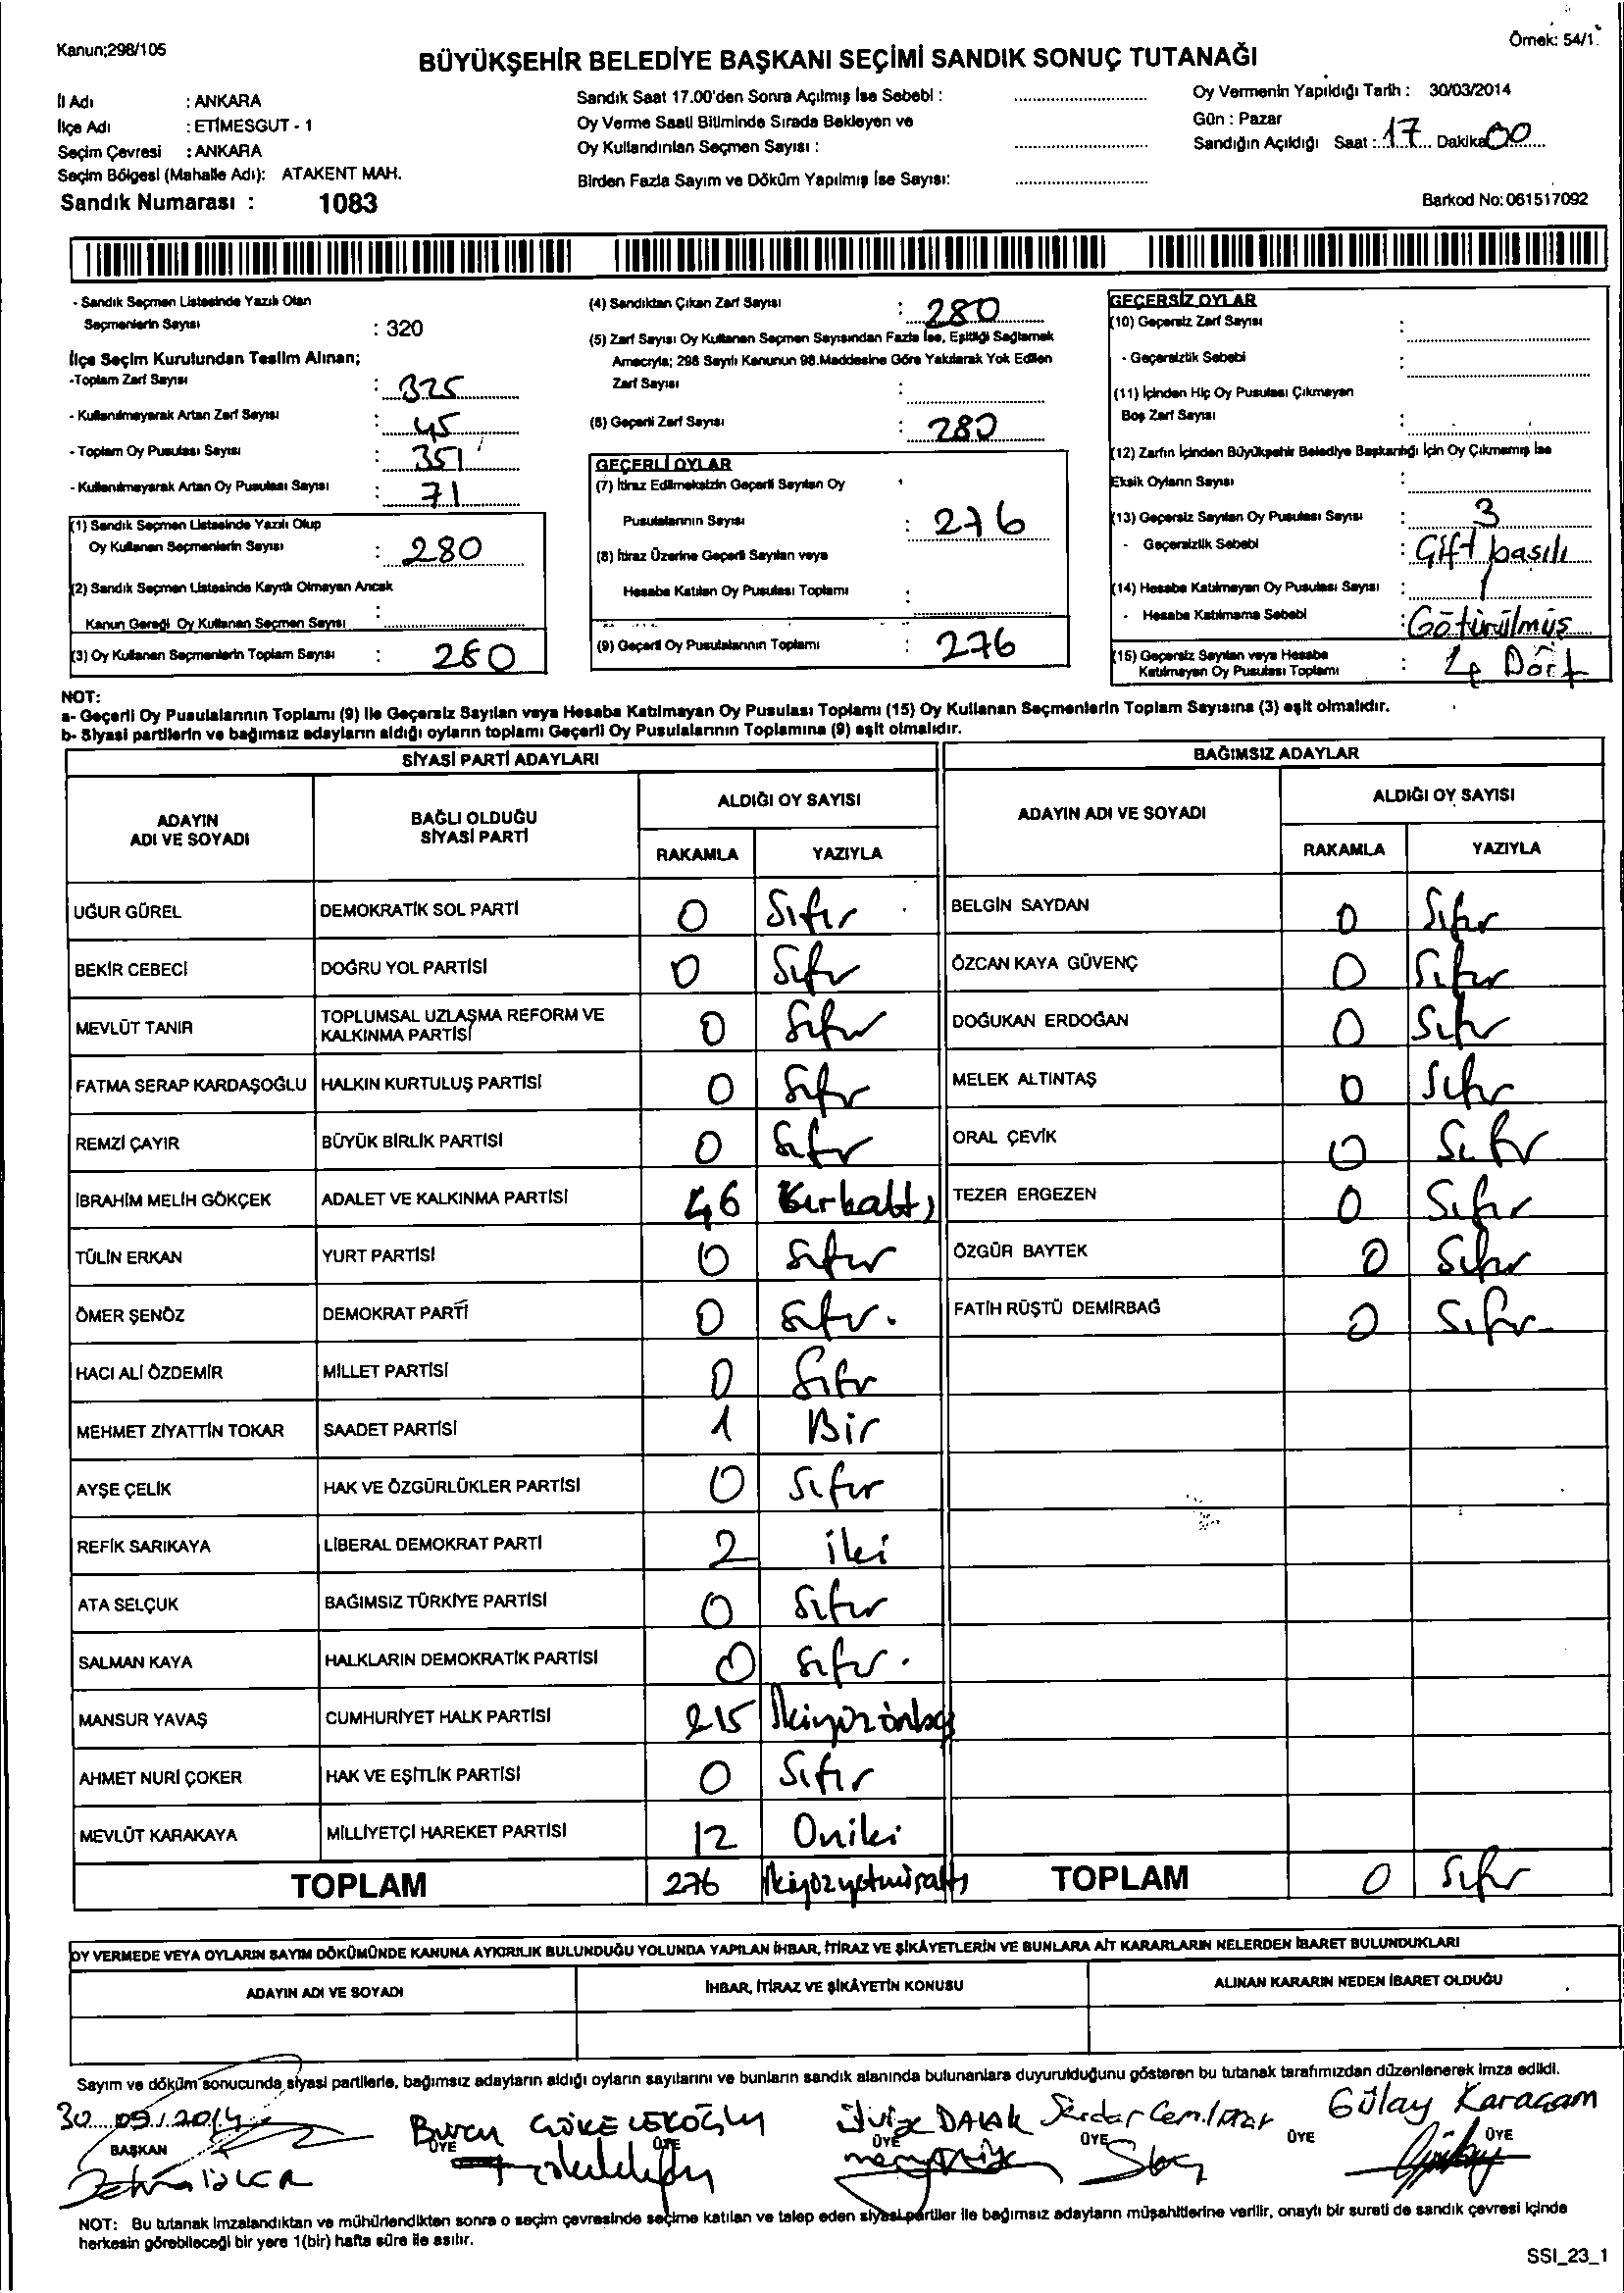 Kanun;298/105
Örnek: 54/1
BÜYÜKŞEHİR BELEDİYE BAŞKANI SEÇİMİ SANDIK SONUÇ TUTANAĞI
İl Adı : ANKARA
İlçe Adı : ETİMESGUT - 1
Seçim Çevresi : ANKARA
Seçim Bölgesi (Mahalle Adı): ATAKENT MAH.
Sandık Numarası : 1083
Sandık Saat 17.00'den Sonra Açılmış İse Sebebi :
Oy Verme Saati Bitiminde Sırada Bekleyen ve
Oy Kullandırılan Seçmen Sayısı :
Birden Fazla Sayım ve Döküm Yapılmış İse Sayısı:
Oy Vermenin Yapıldığı Tarih : 30/03/2014
Gün : Pazar
Sandığın Açıldığı Saat : 17 Dakika 00
Barkod No: 061517092
- Sandık Seçmen Listesinde Yazılı Olan
Seçmenlerin Sayısı : 320
İlçe Seçim Kurulundan Teslim Alınan;
-Toplam Zarf Sayısı : 325
- Kullanılmayarak Artan Zarf Sayısı : 45
- Toplam Oy Pusulası Sayısı : 351
- Kullanılmayarak Artan Oy Pusulası Sayısı : 71
(1) Sandık Seçmen Listesinde Yazılı Olup
Oy Kullanan Seçmenlerin Sayısı : 280
(2) Sandık Seçmen Listesinde Kayıtlı Olmayan Ancak
Kanun Gereği Oy Kullanan Seçmen Sayısı :
(3) Oy Kullanan Seçmenlerin Toplam Sayısı : 280
(4) Sandıktan Çıkan Zarf Sayısı : 280
(5) Zarf Sayısı Oy Kullanan Seçmen Sayısından Fazla İse, Eşitliği Sağlamak
Amacıyla; 298 Sayılı Kanunun 98.Maddesine Göre Yakılarak Yok Edilen
Zarf Sayısı :
(6) Geçerli Zarf Sayısı : 280
GEÇERLİ OYLAR
(7) İtiraz Edilmeksizin Geçerli Sayılan Oy
Pusulalarının Sayısı : 276
(8) İtiraz Üzerine Geçerli Sayılan veya
Hesaba Katılan Oy Pusulası Toplamı :
(9) Geçerli Oy Pusulalarının Toplamı : 276
GEÇERSİZ OYLAR
(10) Geçersiz Zarf Sayısı :
- Geçersizlik Sebebi :
(11) İçinden Hiç Oy Pusulası Çıkmayan
Boş Zarf Sayısı :
(12) Zarfın İçinden Büyükşehir Belediye Başkanlığı İçin Oy Çıkmamış İse
Eksik Oyların Sayısı :
(13) Geçersiz Sayılan Oy Pusulası Sayısı : 3
- Geçersizlik Sebebi : Çift basılı
(14) Hesaba Katılmayan Oy Pusulası Sayısı : 1
- Hesaba Katılmama Sebebi : Götürülmüş
(15) Geçersiz Sayılan veya Hesaba
Katılmayan Oy Pusulası Toplamı : 4 Dört
NOT:
a- Geçerli Oy Pusulalarının Toplamı (9) ile Geçersiz Sayılan veya Hesaba Katılmayan Oy Pusulası Toplamı (15) Oy Kullanan Seçmenlerin Toplam Sayısına (3) eşit olmalıdır.
b- Siyasi partilerin ve bağımsız adayların aldığı oyların toplamı Geçerli Oy Pusulalarının Toplamına (9) eşit olmalıdır.
SİYASİ PARTİ ADAYLARI
BAĞIMSIZ ADAYLAR
ADAYIN ADI VE SOYADI
BAĞLI OLDUĞU SİYASİ PARTİ
ALDIĞI OY SAYISI
RAKAMLA YAZIYLA
ADAYIN ADI VE SOYADI
ALDIĞI OY SAYISI
RAKAMLA YAZIYLA
UĞUR GÜREL DEMOKRATİK SOL PARTİ 0 Sıfır BELGİN SAYDAN 0 Sıfır
BEKİR CEBECİ DOĞRU YOL PARTİSİ 0 Sıfır ÖZCAN KAYA GÜVENÇ 0 Sıfır
MEVLÜT TANIR TOPLUMSAL UZLAŞMA REFORM VE KALKINMA PARTİSİ 0 Sıfır DOĞUKAN ERDOĞAN 0 Sıfır
FATMA SERAP KARDAŞOĞLU HALKIN KURTULUŞ PARTİSİ 0 Sıfır MELEK ALTINTAŞ 0 Sıfır
REMZİ ÇAYIR BÜYÜK BİRLİK PARTİSİ 0 Sıfır ORAL ÇEVİK 0 Sıfır
İBRAHİM MELİH GÖKÇEK ADALET VE KALKINMA PARTİSİ 46 Kırkaltı TEZER ERGEZEN 0 Sıfır
TÜLİN ERKAN YURT PARTİSİ 0 Sıfır ÖZGÜR BAYTEK 0 Sıfır
ÖMER ŞENÖZ DEMOKRAT PARTİ 0 Sıfır. FATİH RÜŞTÜ DEMİRBAĞ 0 Sıfır
HACI ALİ ÖZDEMİR MİLLET PARTİSİ 0 Sıfır
MEHMET ZİYATTİN TOKAR SAADET PARTİSİ 1 Bir
AYŞE ÇELİK HAK VE ÖZGÜRLÜKLER PARTİSİ 0 Sıfır
REFİK SARIKAYA LİBERAL DEMOKRAT PARTİ 2 iki
ATA SELÇUK BAĞIMSIZ TÜRKİYE PARTİSİ 0 Sıfır
SALMAN KAYA HALKLARIN DEMOKRATİK PARTİSİ 0 Sıfır.
MANSUR YAVAŞ CUMHURİYET HALK PARTİSİ 215 İkiyüzonbeş
AHMET NURİ ÇOKER HAK VE EŞİTLİK PARTİSİ 0 Sıfır
MEVLÜT KARAKAYA MİLLİYETÇİ HAREKET PARTİSİ 12 Oniki
TOPLAM 276 İkiyüzyetmişaltı TOPLAM 0 Sıfır
OY VERMEDE VEYA OYLARIN SAYIM DÖKÜMÜNDE KANUNA AYKIRILIK BULUNDUĞU YOLUNDA YAPILAN İHBAR, İTİRAZ VE ŞİKÂYETLERİN VE BUNLARA AİT KARARLARIN NELERDEN İBARET BULUNDUKLARI
ADAYIN ADI VE SOYADI İHBAR, İTİRAZ VE ŞİKÂYETİN KONUSU ALINAN KARARIN NEDEN İBARET OLDUĞU
Sayım ve döküm sonucunda siyasi partilerle, bağımsız adayların aldığı oyların sayılarını ve bunların sandık alanında bulunanlara duyurulduğunu gösteren bu tutanak tarafımızdan düzenlenerek imza edildi.
30 03 2014 Burcu DALAK Serdar Gülay Karaçam
BAŞKAN ÜYE ÜYE ÜYE ÜYE ÜYE ÜYE
NOT: Bu tutanak imzalandıktan ve mühürlendikten sonra o seçim çevresinde seçime katılan ve talep eden siyasi partiler ile bağımsız adayların müşahitlerine verilir, onaylı bir sureti de sandık çevresi içinde
herkesin görebileceği bir yere 1(bir) hafta süre ile asılır.
SSI_23_1